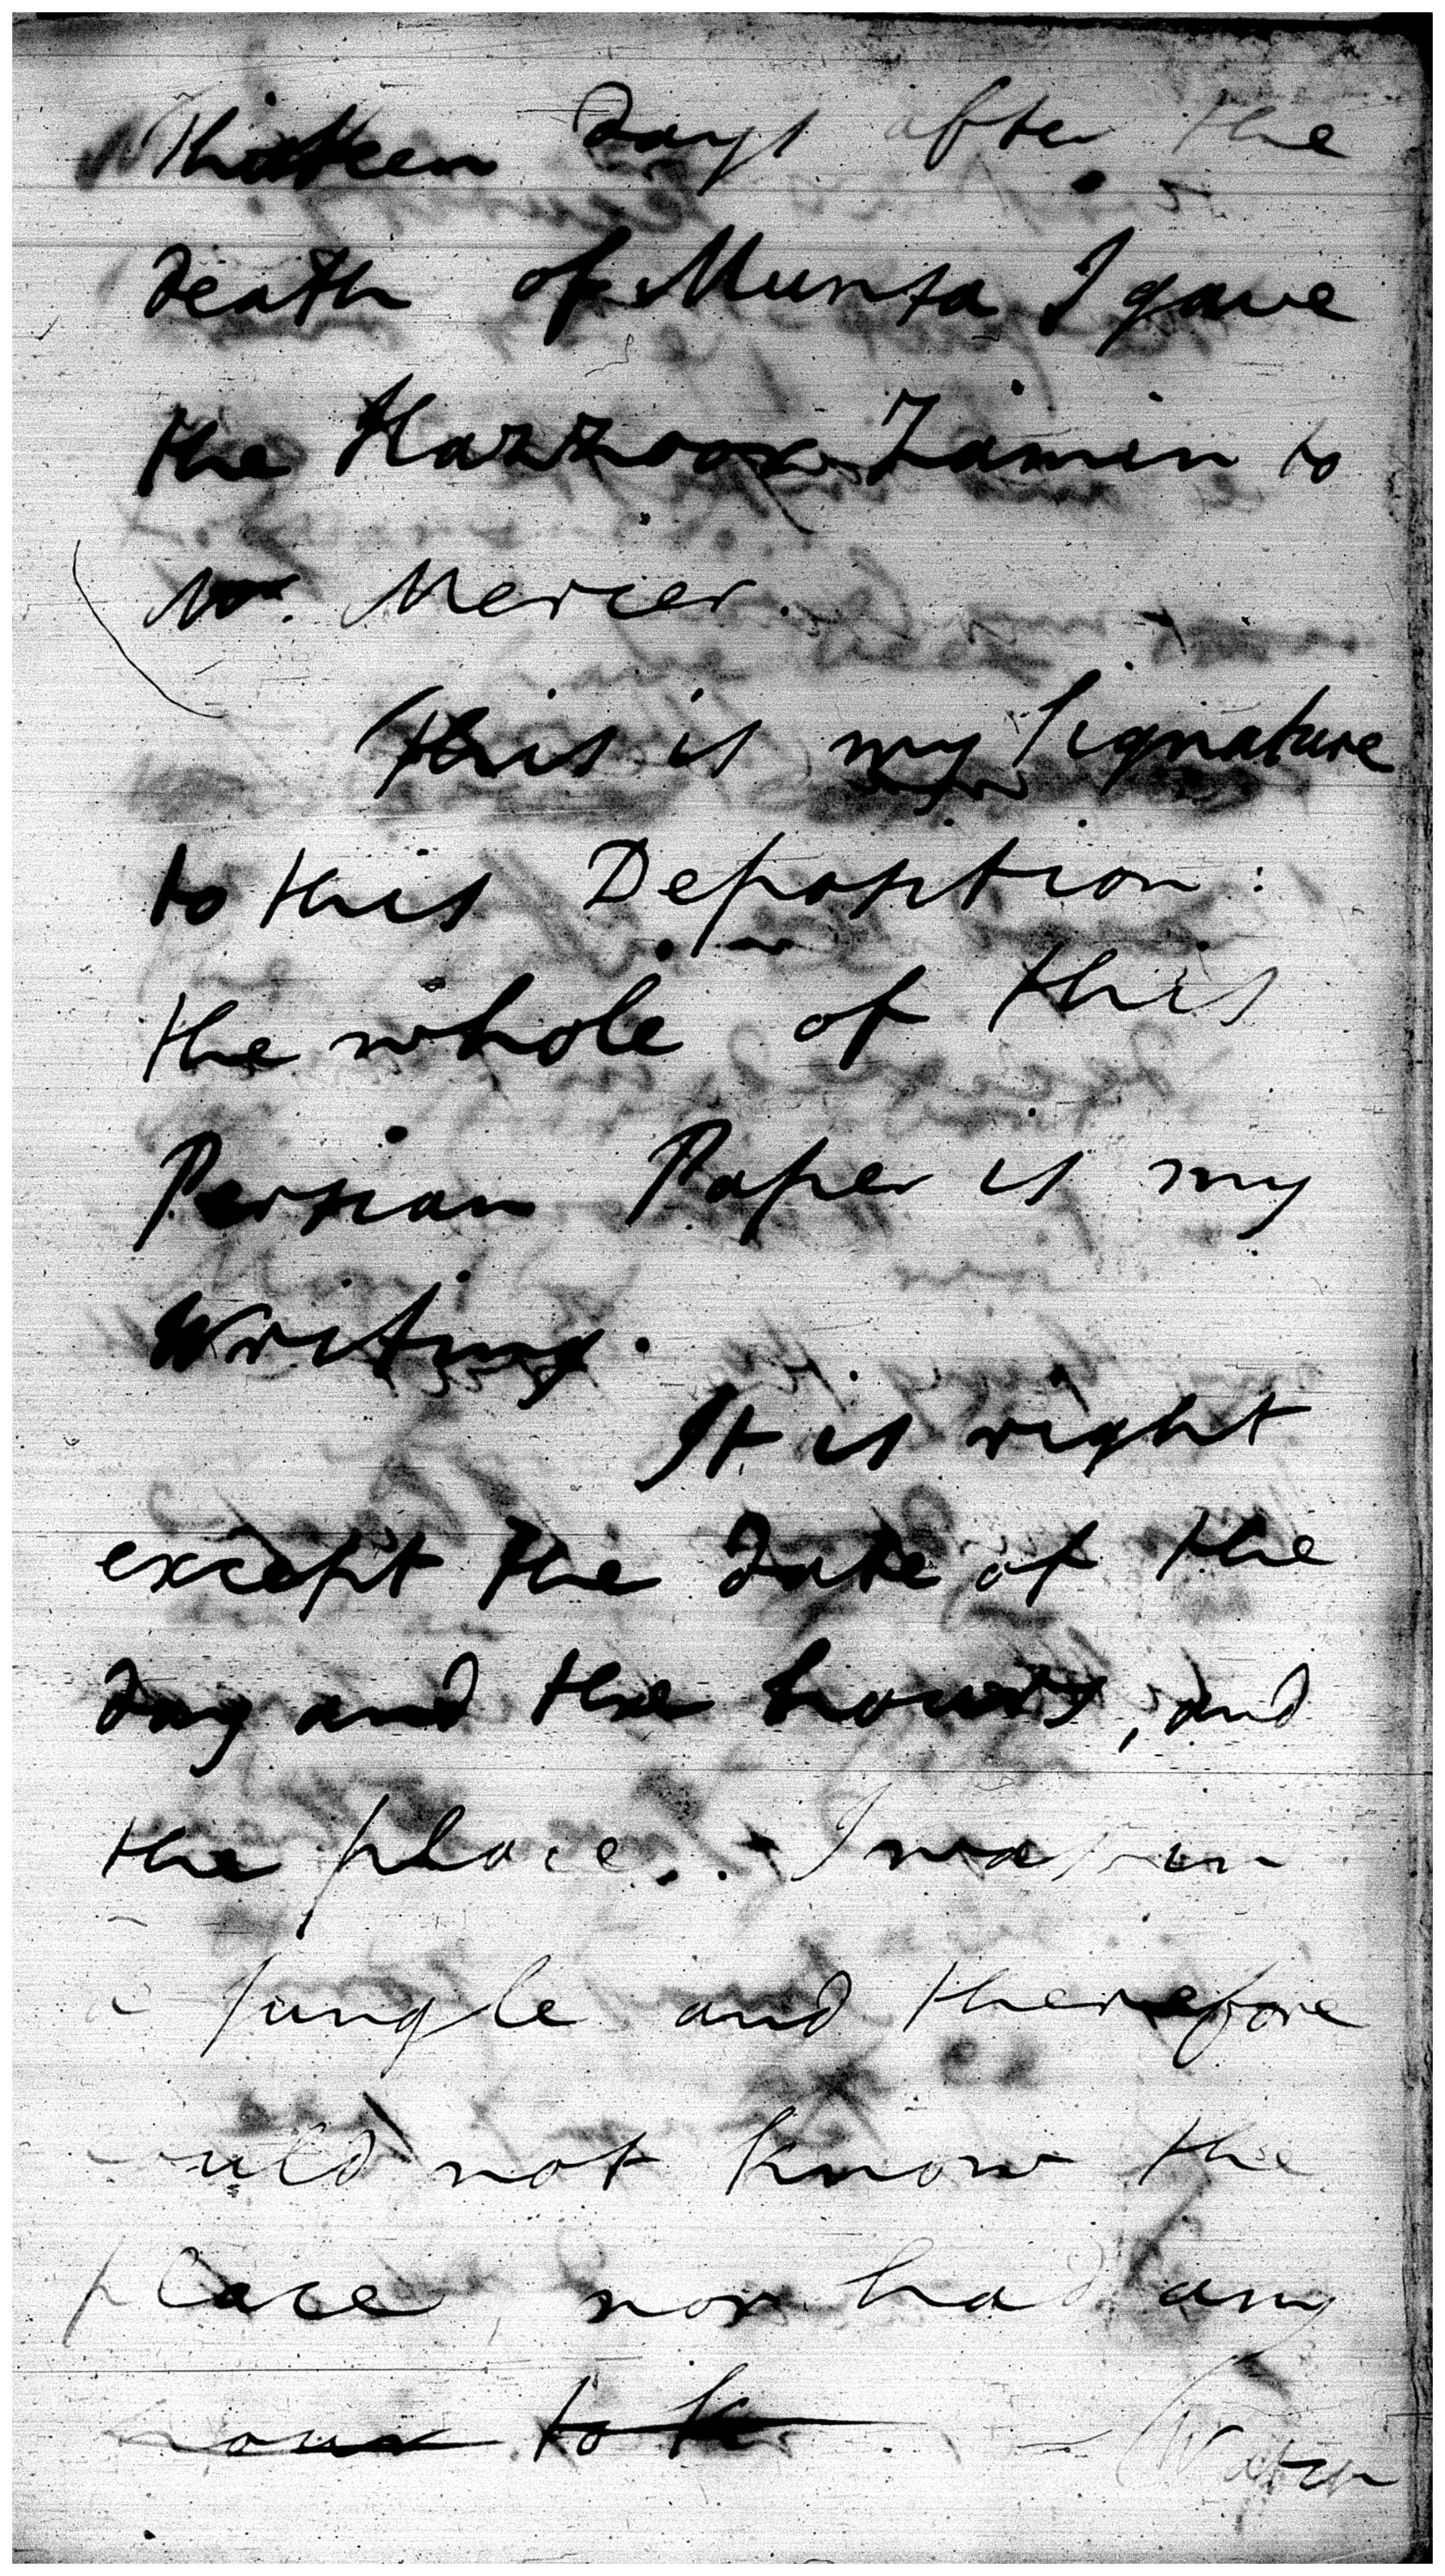 Thirteen days after the
death of Munsa I gave
the Hazzoor Zamin to
Mr. Mercier.
This is my Signature
to this Deposition :
the whole of this
Persian Paper is my
Writing.
It is right
except the date of the
day and the hours, and
the place. I was in
a Jungle and therefore
could not know the
place, nor had any
hour to k
Watch